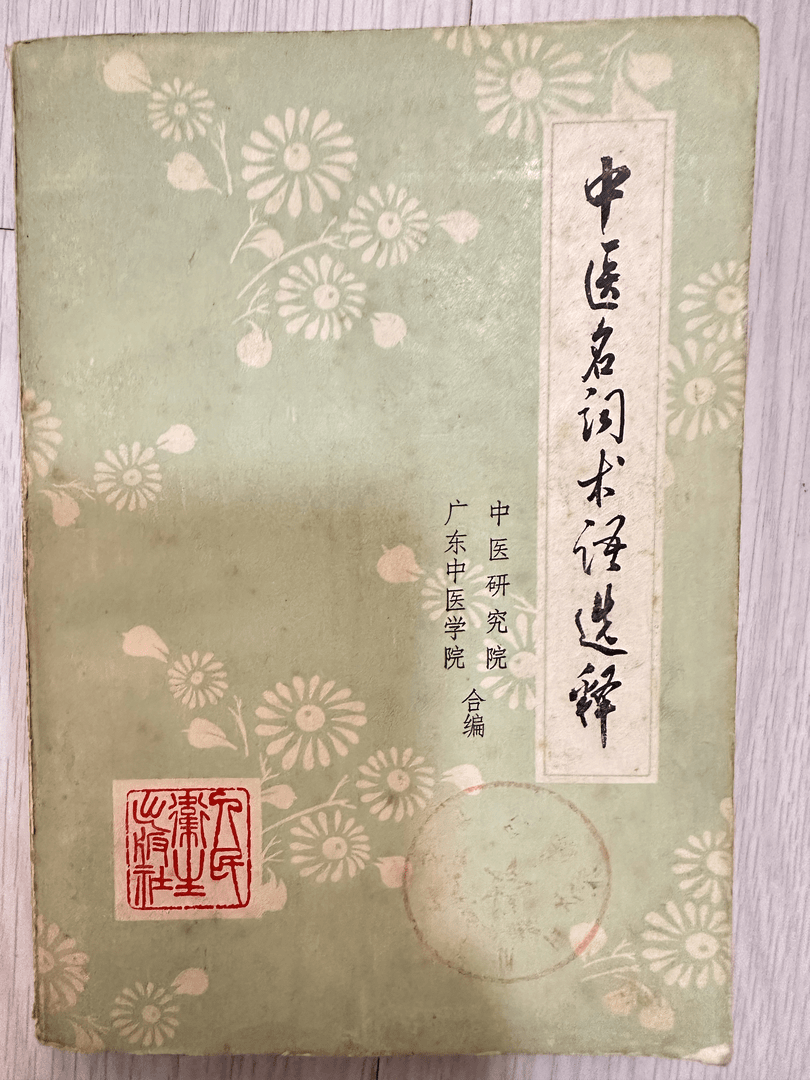 中医名词术语选释
中医研究院
广东中医学院
合编
人民
衞生
出版社